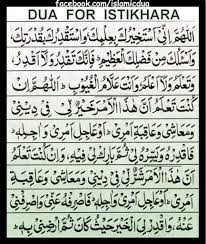 facebook.com/islamicdua
DUA FOR ISTIKHARA
اَللّٰهُمَّ اِنِّيْ اَسْتَخِيْرُكَ بِعِلْمِكَ وَاسْتَقْدِرُكَ بِقُدْرَتِكَ
وَاَسْئَلُكَ مِنْ فَضْلِكَ الْعَظِيْمِ فَاِنَّكَ تَقْدِرُ وَلَا اَقْدِرُ
وَتَعْلَمُ وَلَا اَعْلَمُ وَاَنْتَ عَلَّامُ الْغُيُوْبِ اَللّٰهُمَّ اِنْ
كُنْتَ تَعْلَمُ اَنَّ هٰذَا الْاَمْرَ خَيْرٌ لِّيْ فِيْ دِيْنِيْ
وَمَعَاشِيْ وَعَاقِبَةِ اَمْرِيْ اَوْ عَاجِلِ اَمْرِيْ وَ اٰجِلِهٖ
فَاقْدِرْهُ وَيَسِّرْهُ لِيْ ثُمَّ بَارِكْ لِيْ فِيْهِ وَاِنْ كُنْتَ تَعْلَمُ
اَنَّ هٰذَا الْاَمْرَ شَرٌّ لِّيْ فِيْ دِيْنِيْ وَمَعَاشِيْ وَعَاقِبَةِ
اَمْرِيْ اَوْ عَاجِلِ اَمْرِيْ وَ اٰجِلِهٖ فَاصْرِفْهُ عَنِّيْ وَاصْرِفْنِيْ
عَنْهُ وَاقْدِرْ لِيَ الْخَيْرَ حَيْثُ كَانَ ثُمَّ اَرْضِنِيْ بِهٖ